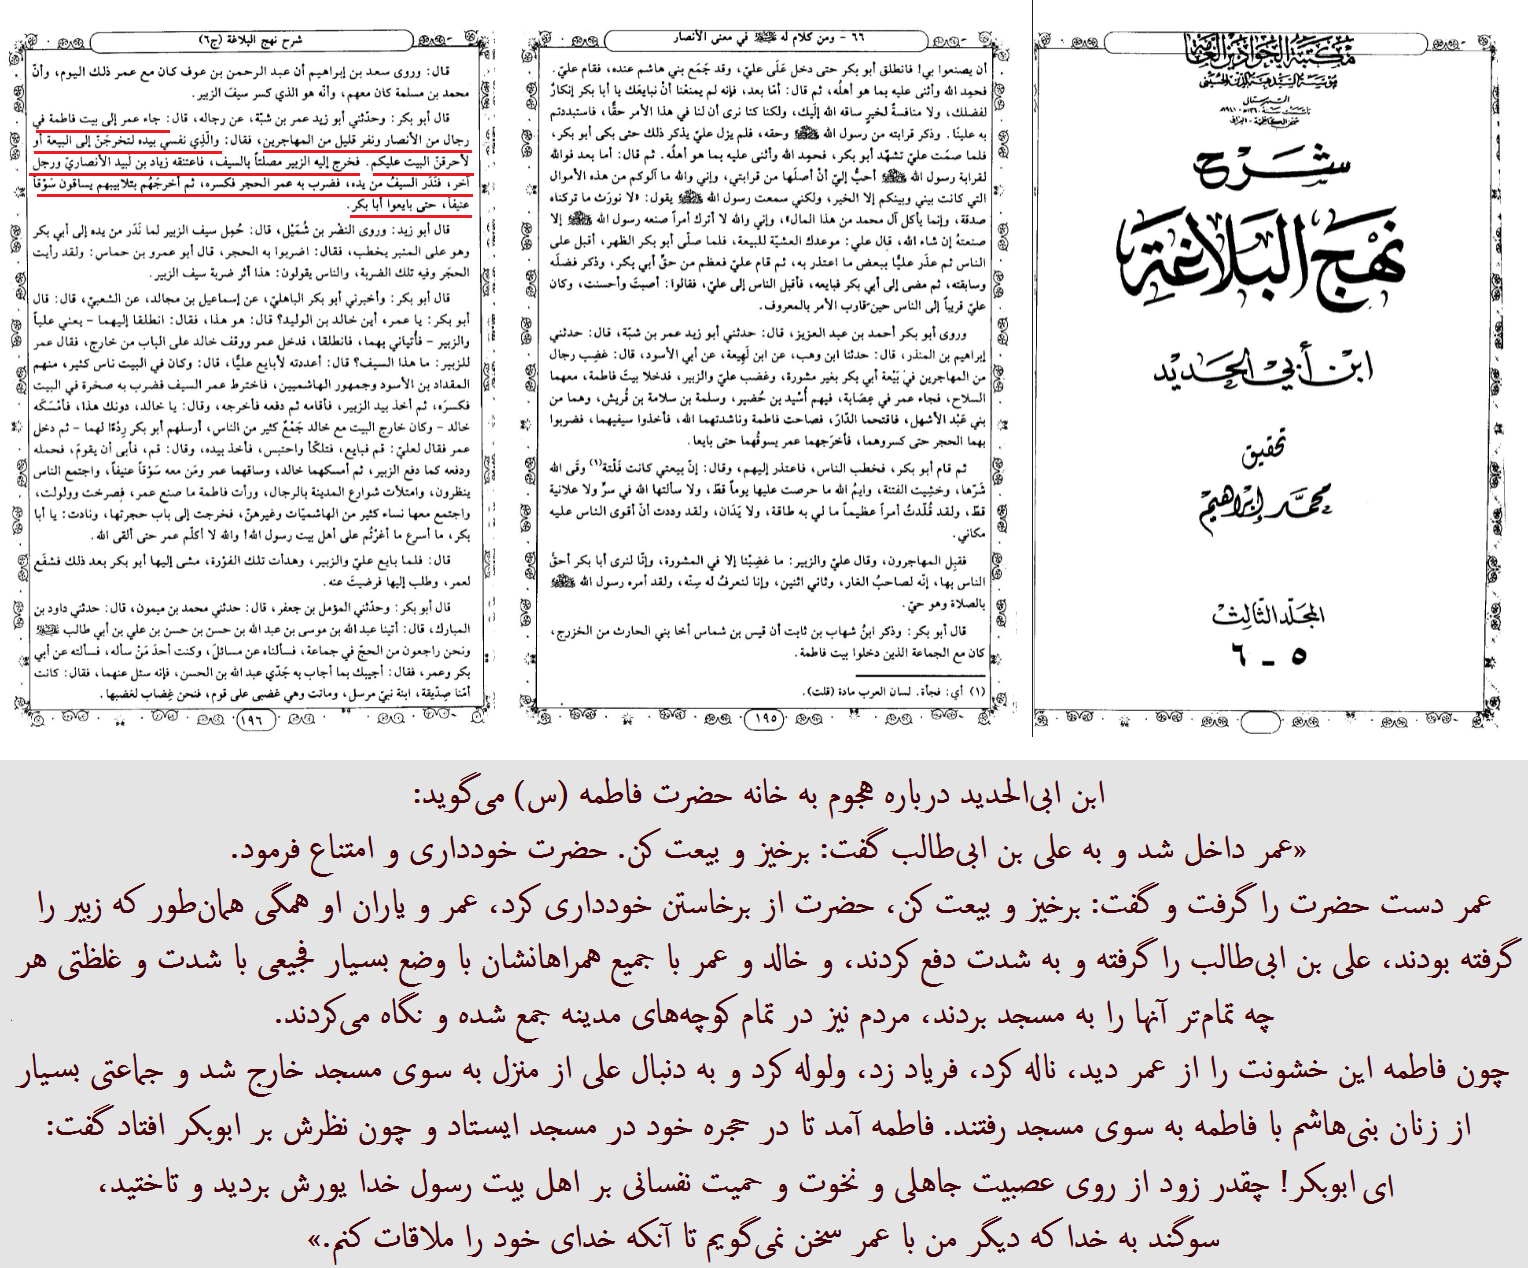 مكتبة الجوادين العامة
شرح
نهج البلاغة
ابن أبي الحديد
تحقيق
محمد إبراهيم
المجلد الثالث
٥ - ٦
٦٦ - ومن كلام له ﷺ في معنى الأنصار
أن يصنعوا بي! فانطلق أبو بكر حتى دخل عَلَى عليّ، وقد جَمَع بني هاشم عنده، فقام عليّ.
فحمِد الله وأثنى عليه بما هو أهلُه، ثم قال: أمّا بعد، فإنه لم يمنعْنا أن نبايعَك يا أبا بكر إنكارٌ
لفضلك، ولا منافسةٌ لخيرٍ ساقه الله إليك، ولكنا كنا نرى أن لنا في هذا الأمر حقًّا، فاستبددتم
به علينا. وذكر قرابته من رسول الله ﷺ وحقه، فلم يزل عليّ يذكر ذلك حتى بكى أبو بكر،
فلما صمَت عليّ تشهّد أبو بكر، فحمِد الله وأثنى عليه بما هو أهلُه. ثم قال: أما بعد فوالله
لقرابة رسول الله ﷺ أحبُّ إليّ أنْ أصلَها من قرابتي، وإني والله ما آلوكم من هذه الأموال
التي كانت بيني وبينكم إلا الخير، ولكني سمعت رسول الله ﷺ يقول: «لا نورَث ما تركناه
صدقة، وإنما يأكل آل محمد من هذا المال»، وإني والله لا أترك أمراً صنعه رسول الله ﷺ إلا
صنعتهُ إن شاء الله، قال علي: موعدك العشيّة للبيعة، فلما صلّى أبو بكر الظهر، أقبل على
الناس ثم عذَر عليًّا ببعض ما اعتذر به، ثم قام عليّ فعظم من حقِّ أبي بكر، وذكر فضلَه
وسابقته، ثم مضى إلى أبي بكر فبايعه، فأقبل الناس إلى عليّ، فقالوا: أصبتَ وأحسنت، وكان
عليّ قريباً إلى الناس حين قارب الأمر بالمعروف.
وروى أبو بكر أحمد بن عبد العزيز، قال: حدثني أبو زيد عمر بن شبّة، قال: حدثني
إبراهيم بن المنذر، قال: حدثنا ابن وهب، عن ابن لَهِيعة، عن أبي الأسود، قال: غضِب رجال
من المهاجرين في بَيْعة أبي بكر بغير مشورة، وغضب عليّ والزبير، فدخلا بيتَ فاطمة، معهما
السلاح، فجاء عمر في عِصَابة، فيهم أُسَيْد بن حُضير، وسلمة بن سلامة بن قُريش، وهما من
بني عَبْد الأشهل، فاقتحما الدّارَ، فصاحت فاطمة وناشدتهما الله، فأخذوا سيفيهما، فضربوا
بهما الحجر حتى كسروهما، فأخرَجهما عمر يسوقُهما حتى بايعا.
ثم قام أبو بكر، فخطب الناس، فاعتذر إليهم، وقال: إنّ بيعتي كانت فَلْتة(١) وقَى الله
شَرّها، وخشِيت الفتنة، وايمُ الله ما حرصت عليها يوماً قطّ، ولا سألتها الله في سرّ ولا علانية
قطّ، ولقد قُلّدتُ أمراً عظيماً ما لي به طاقة، ولا يَدَان، ولقد وددت أنْ أقوى الناس عليه
مكاني.
فقبِل المهاجرون، وقال عليّ والزبير: ما غضِبْنا إلا في المشورة، وإنّا لنرى أبا بكر أحقَّ
الناس بها، إنّه لصاحبُ الغار، وثاني اثنين، وإنا لنعرفُ له سِنّه، ولقد أمره رسول الله ﷺ
بالصلاة وهو حيّ.
قال أبو بكر: وذكر ابنُ شهاب بن ثابت أن قيس بن شماس أخا بني الحارث من الخزرج،
كان مع الجماعة الذين دخلوا بيت فاطمة.
(١) أي: فجأة. لسان العرب مادة (فلت).
١٩٥
شرح نهج البلاغة (ج٦)
قال: وروى سعد بن إبراهيم أن عبد الرحمن بن عوف كان مع عمر ذلك اليوم، وأنّ
محمد بن مسلمة كان معهم، وأنّه هو الذي كسر سيفَ الزبير.
قال أبو بكر: وحدّثني أبو زيد عمر بن شبّة، عن رجاله، قال: جاء عمر إلى بيت فاطمة في
رجال من الأنصار ونفر قليل من المهاجرين، فقال: والّذِي نفسي بيده لتخرجَنّ إلى البيعة أو
لأحرقنّ البيت عليكم. فخرج إليه الزبير مصلتاً بالسيف، فاعتنقه زياد بن لبيد الأنصاريّ ورجل
آخر، فنَدَر السيفُ من يده، فضرب به عمر الحجر فكسره، ثم أخرجَهُم بتلابيبهم يساقون سَوْقاً
عنيفاً، حتى بايعوا أبا بكر.
قال أبو زيد: وروى النضْر بن شُمَيْل، قال: حُمِل سيف الزبير لما نَدَر من يده إلى أبي بكر
وهو على المنبر يخطب، فقال: اضربوا به الحجر، قال أبو عمرو بن حماس: ولقد رأيت
الحجَر وفيه تلك الضربة، والناس يقولون: هذا أثر ضربة سيف الزبير.
قال أبو بكر: وأخبرني أبو بكر الباهليّ، عن إسماعيل بن مجالد، عن الشعبيّ، قال: قال
أبو بكر: يا عمر، أين خالد بن الوليد؟ قال: هو هذا، فقال: انطلقا إليهما – يعني علياً
والزبير – فأتياني بهما، فانطلقا، فدخل عمر ووقف خالد على الباب من خارج، فقال عمر
للزبير: ما هذا السيف؟ قال: أعددته لأبايع عليًّا، قال: وكان في البيت ناس كثير، منهم
المقداد بن الأسود وجمهور الهاشميين، فاخترط عمر السيف فضرب به صخرة في البيت
فكسرَه، ثم أخذ بيد الزبير، فأقامه ثم دفعه فأخرجه، وقال: يا خالد، دونك هذا، فأمْسَكَه
خالد – وكان خارج البيت مع خالد جَمْعٌ كثير من الناس، أرسلهم أبو بكر رِدْءًا لهما – ثم دخل
عمر فقال لعليّ: قم فبايع، فتلكّأ واحتبس، فأخذ بيده، وقال: قم، فأبى أن يقومَ، فحمله
ودفعه كما دفع الزبير، ثم أمسكهما خالد، وساقهما عمر ومَن معه سَوْقاً عنيفاً، واجتمع الناس
ينظرون، وامتلأت شوارع المدينة بالرجال، ورأت فاطمة ما صنع عمر، فصرخت وولولت،
واجتمع معها نساء كثير من الهاشميّات وغيرهنّ، فخرجت إلى باب حجرتها، ونادت: يا أبا
بكر، ما أسرع ما أغرْتُم على أهل بيت رسول الله! والله لا أكلّم عمر حتى ألقى الله.
قال: فلما بايع عليّ والزبير، وهدأت تلك الفوْرة، مشى إليها أبو بكر بعد ذلك فشفَع
لعمر، وطلب إليها فرضيَتْ عنه.
قال أبو بكر: وحدّثني المؤمل بن جعفر، قال: حدثني محمد بن ميمون، قال: حدثني داود بن
المبارك، قال: أتينا عبد الله بن موسى بن عبد الله بن حسن بن حسن بن علي بن أبي طالب ﷺ
ونحن راجعون من الحجّ في جماعة، فسألناه عن مسائلَ، وكنت أحدَ مَنْ سأله، فسألته عن أبي
بكر وعمر، فقال: أجيبك بما أجاب به جَدّي عبد الله بن الحسن، فإنه سئل عنهما، فقال: كانت
أمّنا صِدّيقة، ابنة نبيّ مرسل، وماتت وهي غضبى على قوم، فنحن غِضاب لغضبها.
١٩٦
ابن ابی‌الحدید درباره هجوم به خانه حضرت فاطمه (س) می‌گوید:
«عمر داخل شد و به علی بن ابی‌طالب گفت: برخیز و بیعت کن. حضرت خودداری و امتناع فرمود.
عمر دست حضرت را گرفت و گفت: برخیز و بیعت کن، حضرت از برخاستن خودداری کرد، عمر و یاران او همگی همان‌طور که زبیر را
گرفته بودند، علی بن ابی‌طالب را گرفته و به شدت دفع کردند، و خالد و عمر با جمیع همراهانشان با وضع بسیار فجیعی با شدت و غلظتی هر
چه تمام‌تر آنها را به مسجد بردند، مردم نیز در تمام کوچه‌های مدینه جمع شده و نگاه می‌کردند.
چون فاطمه این خشونت را از عمر دید، ناله کرد، فریاد زد، ولوله کرد و به دنبال علی از منزل به سوی مسجد خارج شد و جماعتی بسیار
از زنان بنی‌هاشم با فاطمه به سوی مسجد رفتند. فاطمه آمد تا در حجره خود در مسجد ایستاد و چون نظرش بر ابوبکر افتاد گفت:
ای ابوبکر! چقدر زود از روی عصبیت جاهلی و نخوت و حمیت نفسانی بر اهل بیت رسول خدا یورش بردید و تاختید،
سوگند به خدا که دیگر من با عمر سخن نمی‌گویم تا آنکه خدای خود را ملاقات کنم.»